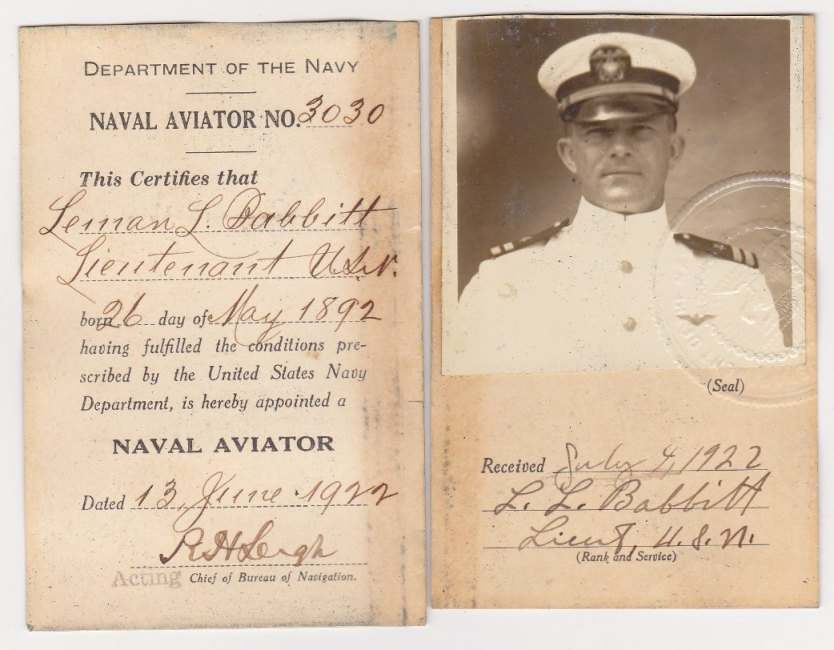 DEPARTMENT OF THE NAVY
NAVAL AVIATOR NO. 3030
This Certifies that
Leman L. Babbitt
Lieutenant U.S.N.
born 26 day of May 1892
having fulfilled the conditions pre-
scribed by the United States Navy
Department, is hereby appointed a
NAVAL AVIATOR
Dated 13 June 1922
R H Leigh
Acting Chief of Bureau of Navigation.
(Seal)
Received July 4, 1922
L. L. Babbitt
Lieut, U.S.N.
(Rank and Service)